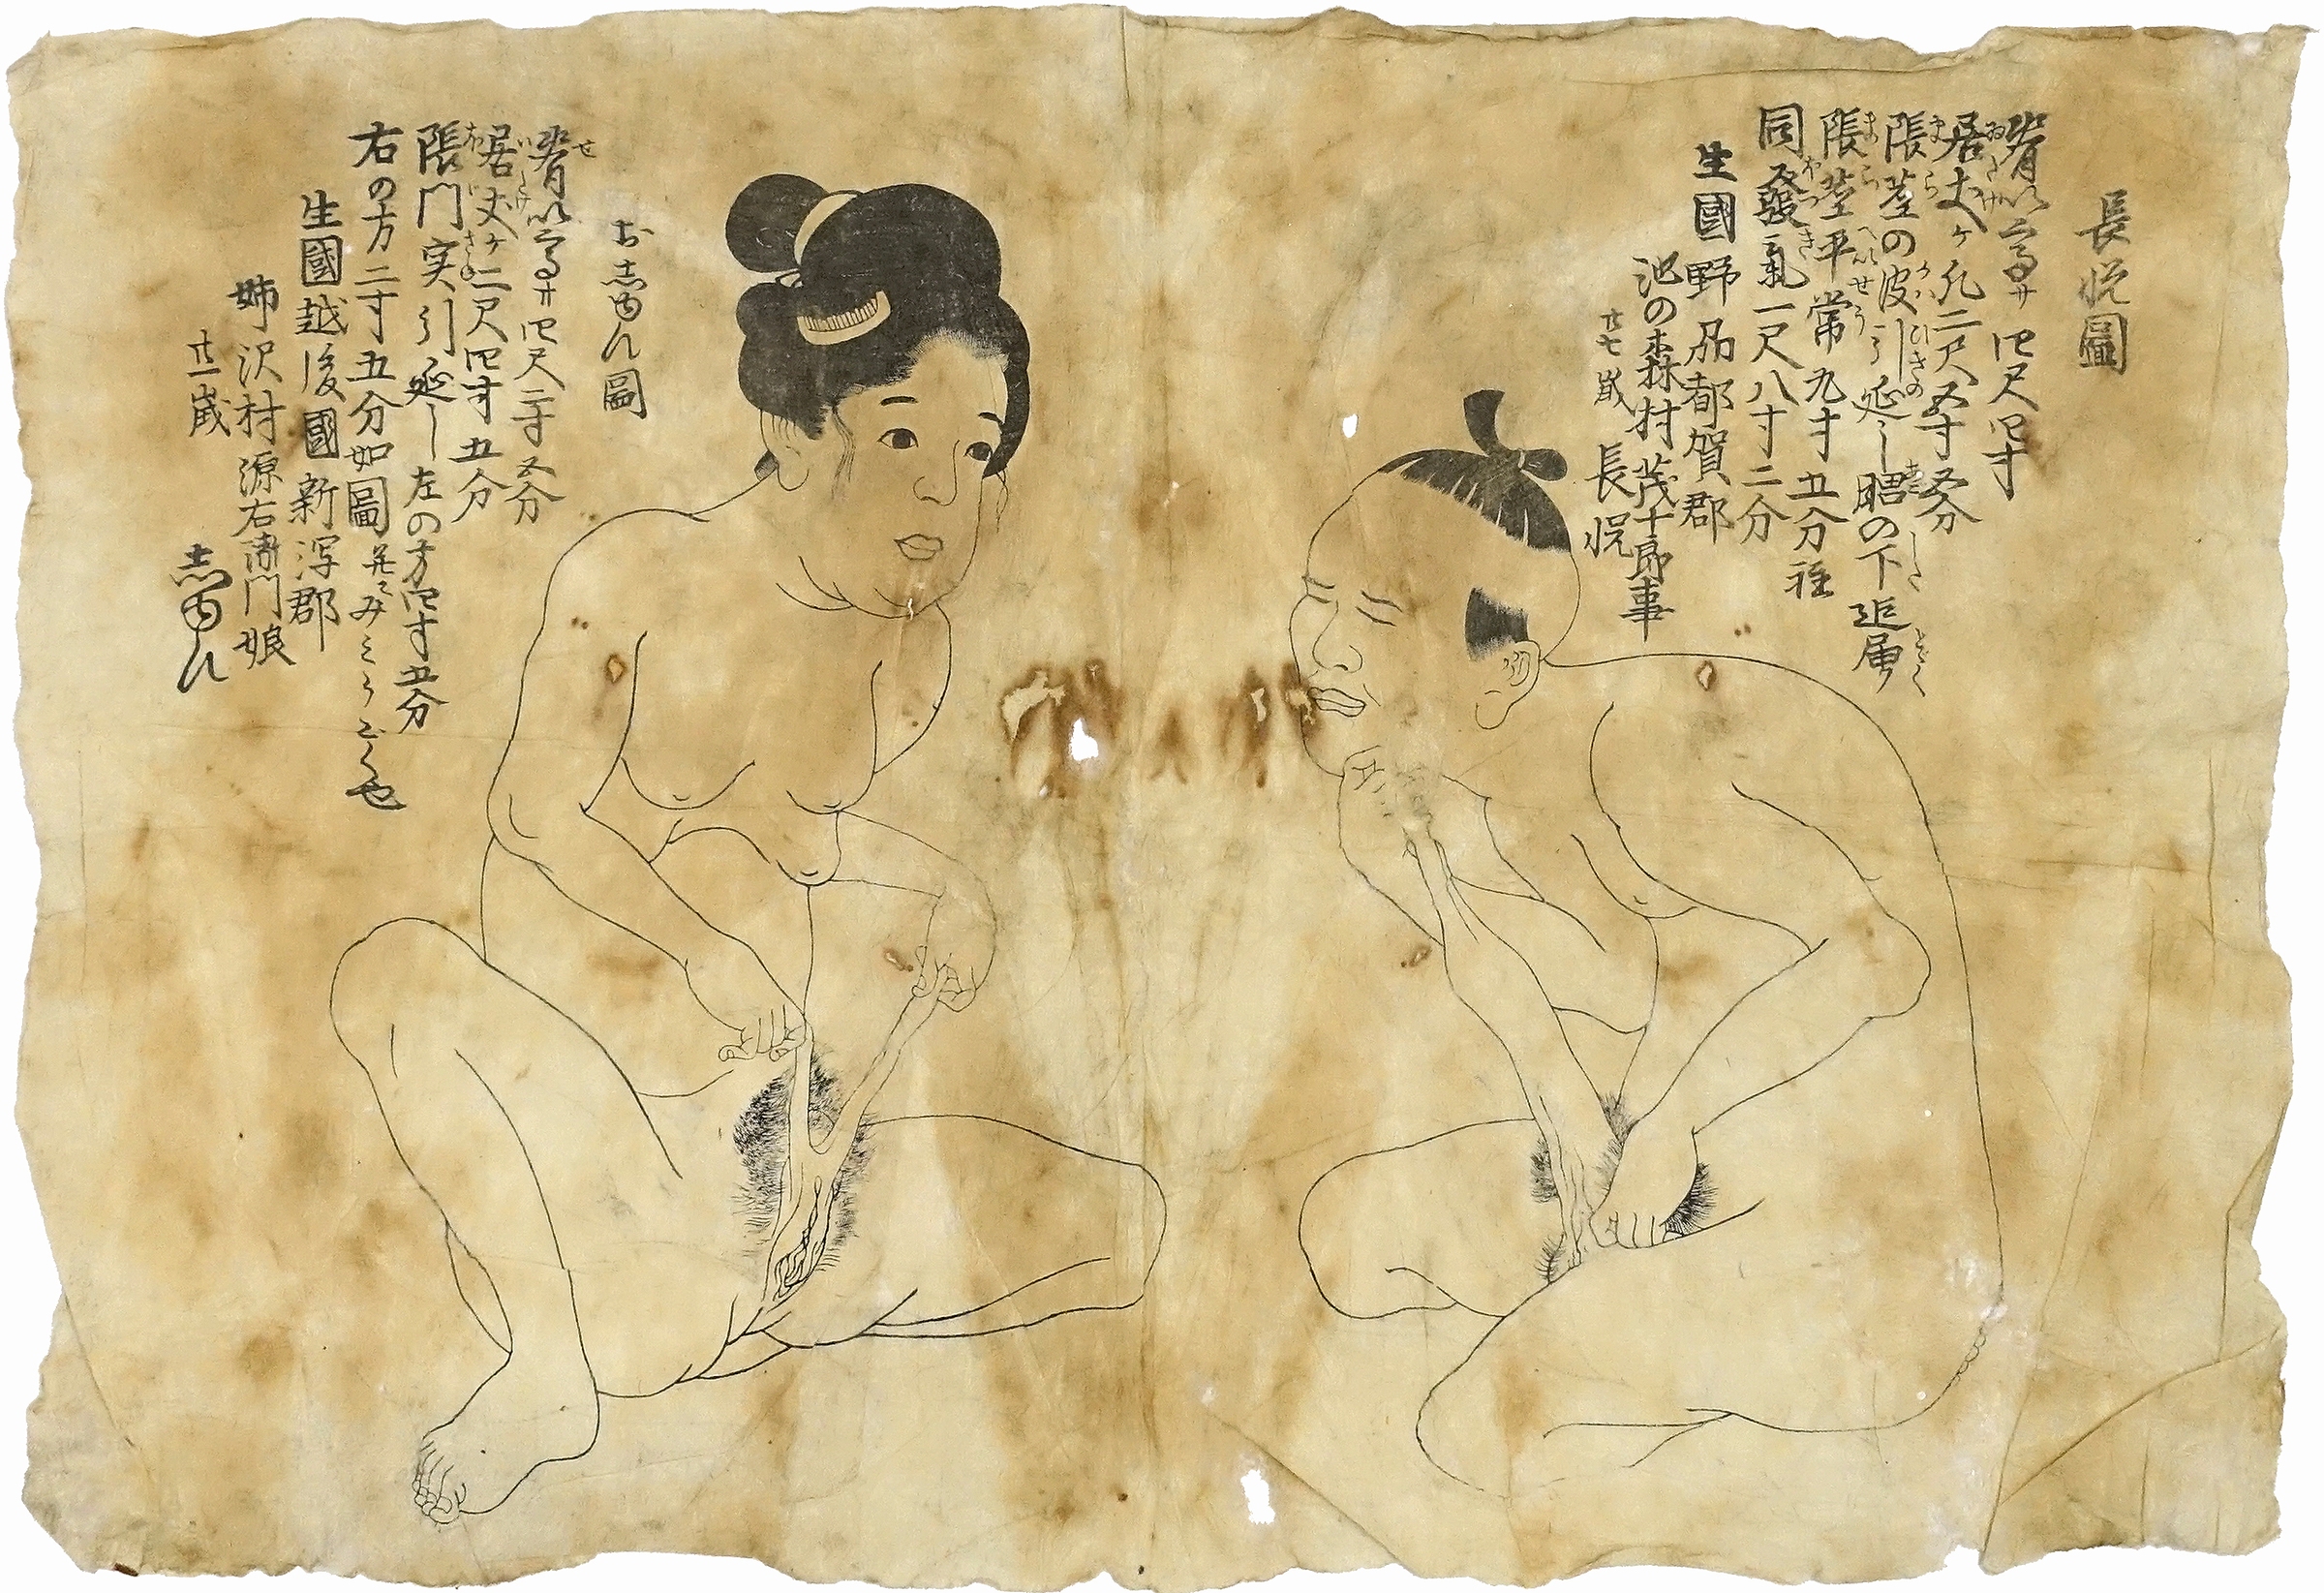 長悦圖
背以高サ 四尺四寸
居丈ケ凡二尺五寸五分
張茎の皮引延し 腮の下迠届
張茎平常九寸五分程
同發氣一尺八寸二分
生國野品都賀郡
池の森村茂十郎事
廿七歳 長悦
お志めん圖
背以高サ四尺二寸五分
居丈ケ二尺四寸五分
張門実引延し左の方四寸五分
右の方二寸五分如圖
生國越後國新泻郡
姉沢村源右衛門娘
廿一歳 志めん